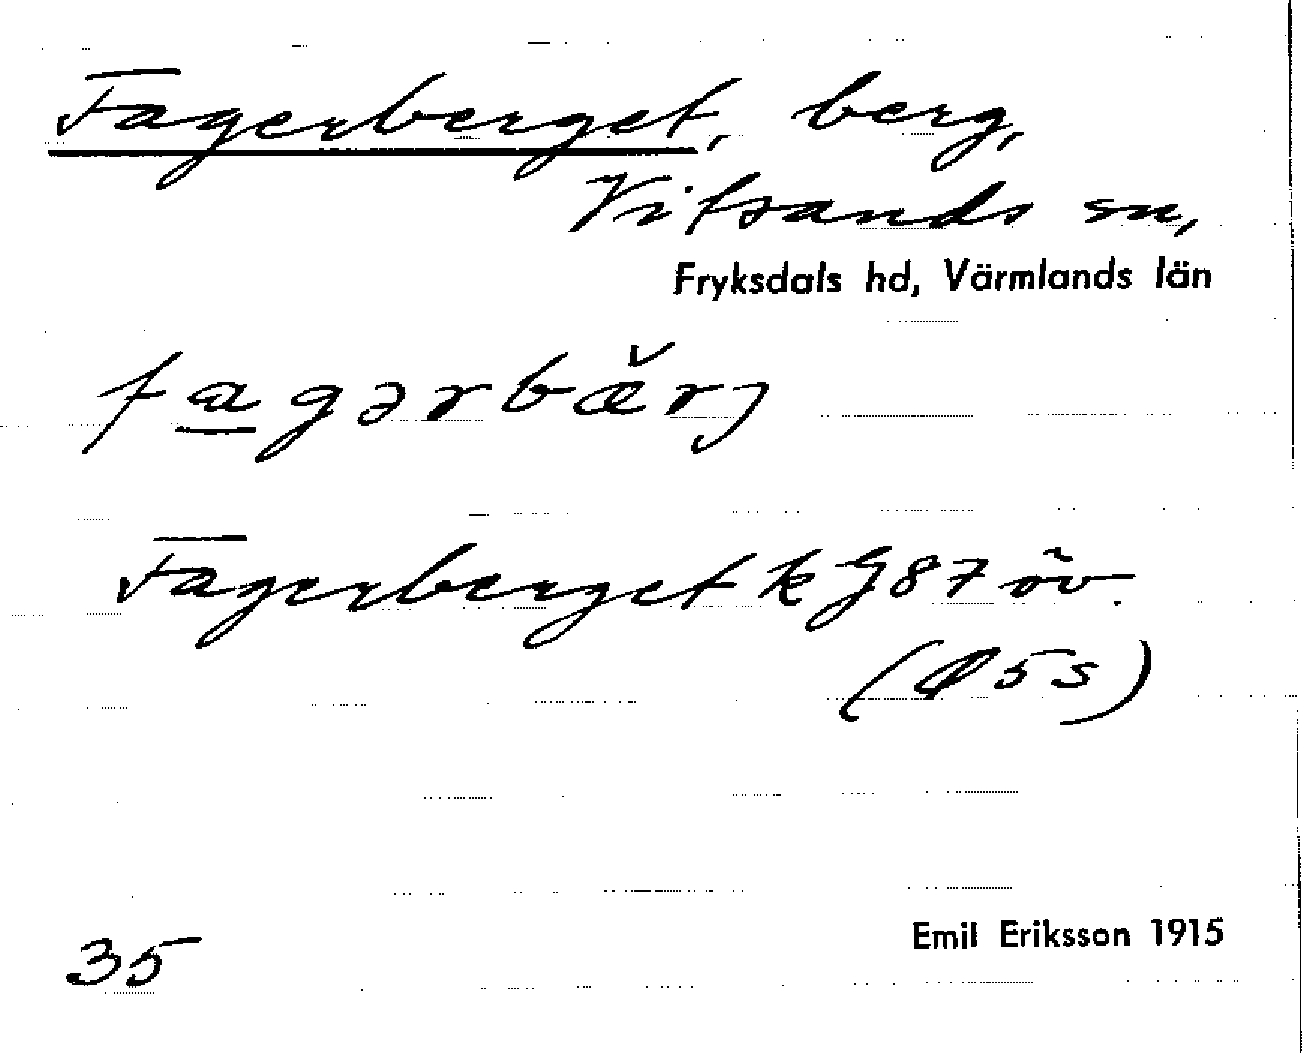 Fagerberget, berg,
Vitsands sn,
Fryksdals hd, Värmlands län
fagərbæ̆rj
Fagerberget k J87 öv.
(Ø5s)
35
Emil Eriksson 1915